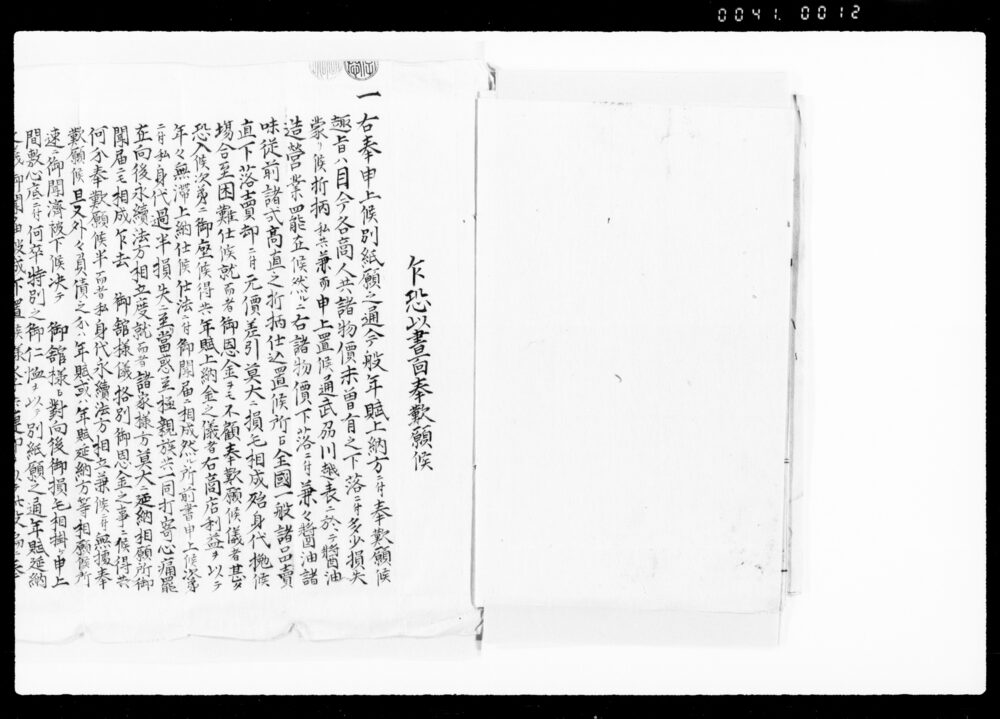 0041. 0012
乍恐以書面奉歎願候
一右奉申上候別紙願之通今般年賦上納方ニ付奉歎願候
趣旨ハ目今各商人共諸物價未曽有之下落ニ付多少損失
蒙リ候折柄私共兼而申上置候通武刕川越表ニ於テ醤油
造營業四能在候然ルニ右諸物價下落ニ付兼々醤油諸
味従前諸式高直之折柄仕込置候所日全國一般諸品賣
直下落賣却ニ付元價差引莫大ニ損毛相成殆身代拋候
場合至困難仕候就而者御恩金ヲモ不顧奉歎願候儀者甚ダ
恐入候次第ニ御座候得共年賦上納金之儀者右商店利益ヲ以テ
年々無滞上納仕候仕法ニ付御聞届ニ相成然ル所前書申上候次第
ニ付私身代過半損失ニ至當惑至極親族共一同打寄心痛罷
在向後永續法方相立度就而者諸家様方莫大ニ延納相願所御
聞届ニモ相成乍去 御舘様儀格別御恩金之事ニ候得共
何分奉歎願候半而者私身代永續法方相立兼候ニ付無據奉
歎願候且又外々員債之分ハ年賦或ハ年賦延納方等相願候所
速ニ御聞済被下候决テ 御舘様ニ對向後御損毛相掛ヶ申上
間敷心底ニ付何卒特別之御仁恤ヲ以テ別紙願之通年賦延納